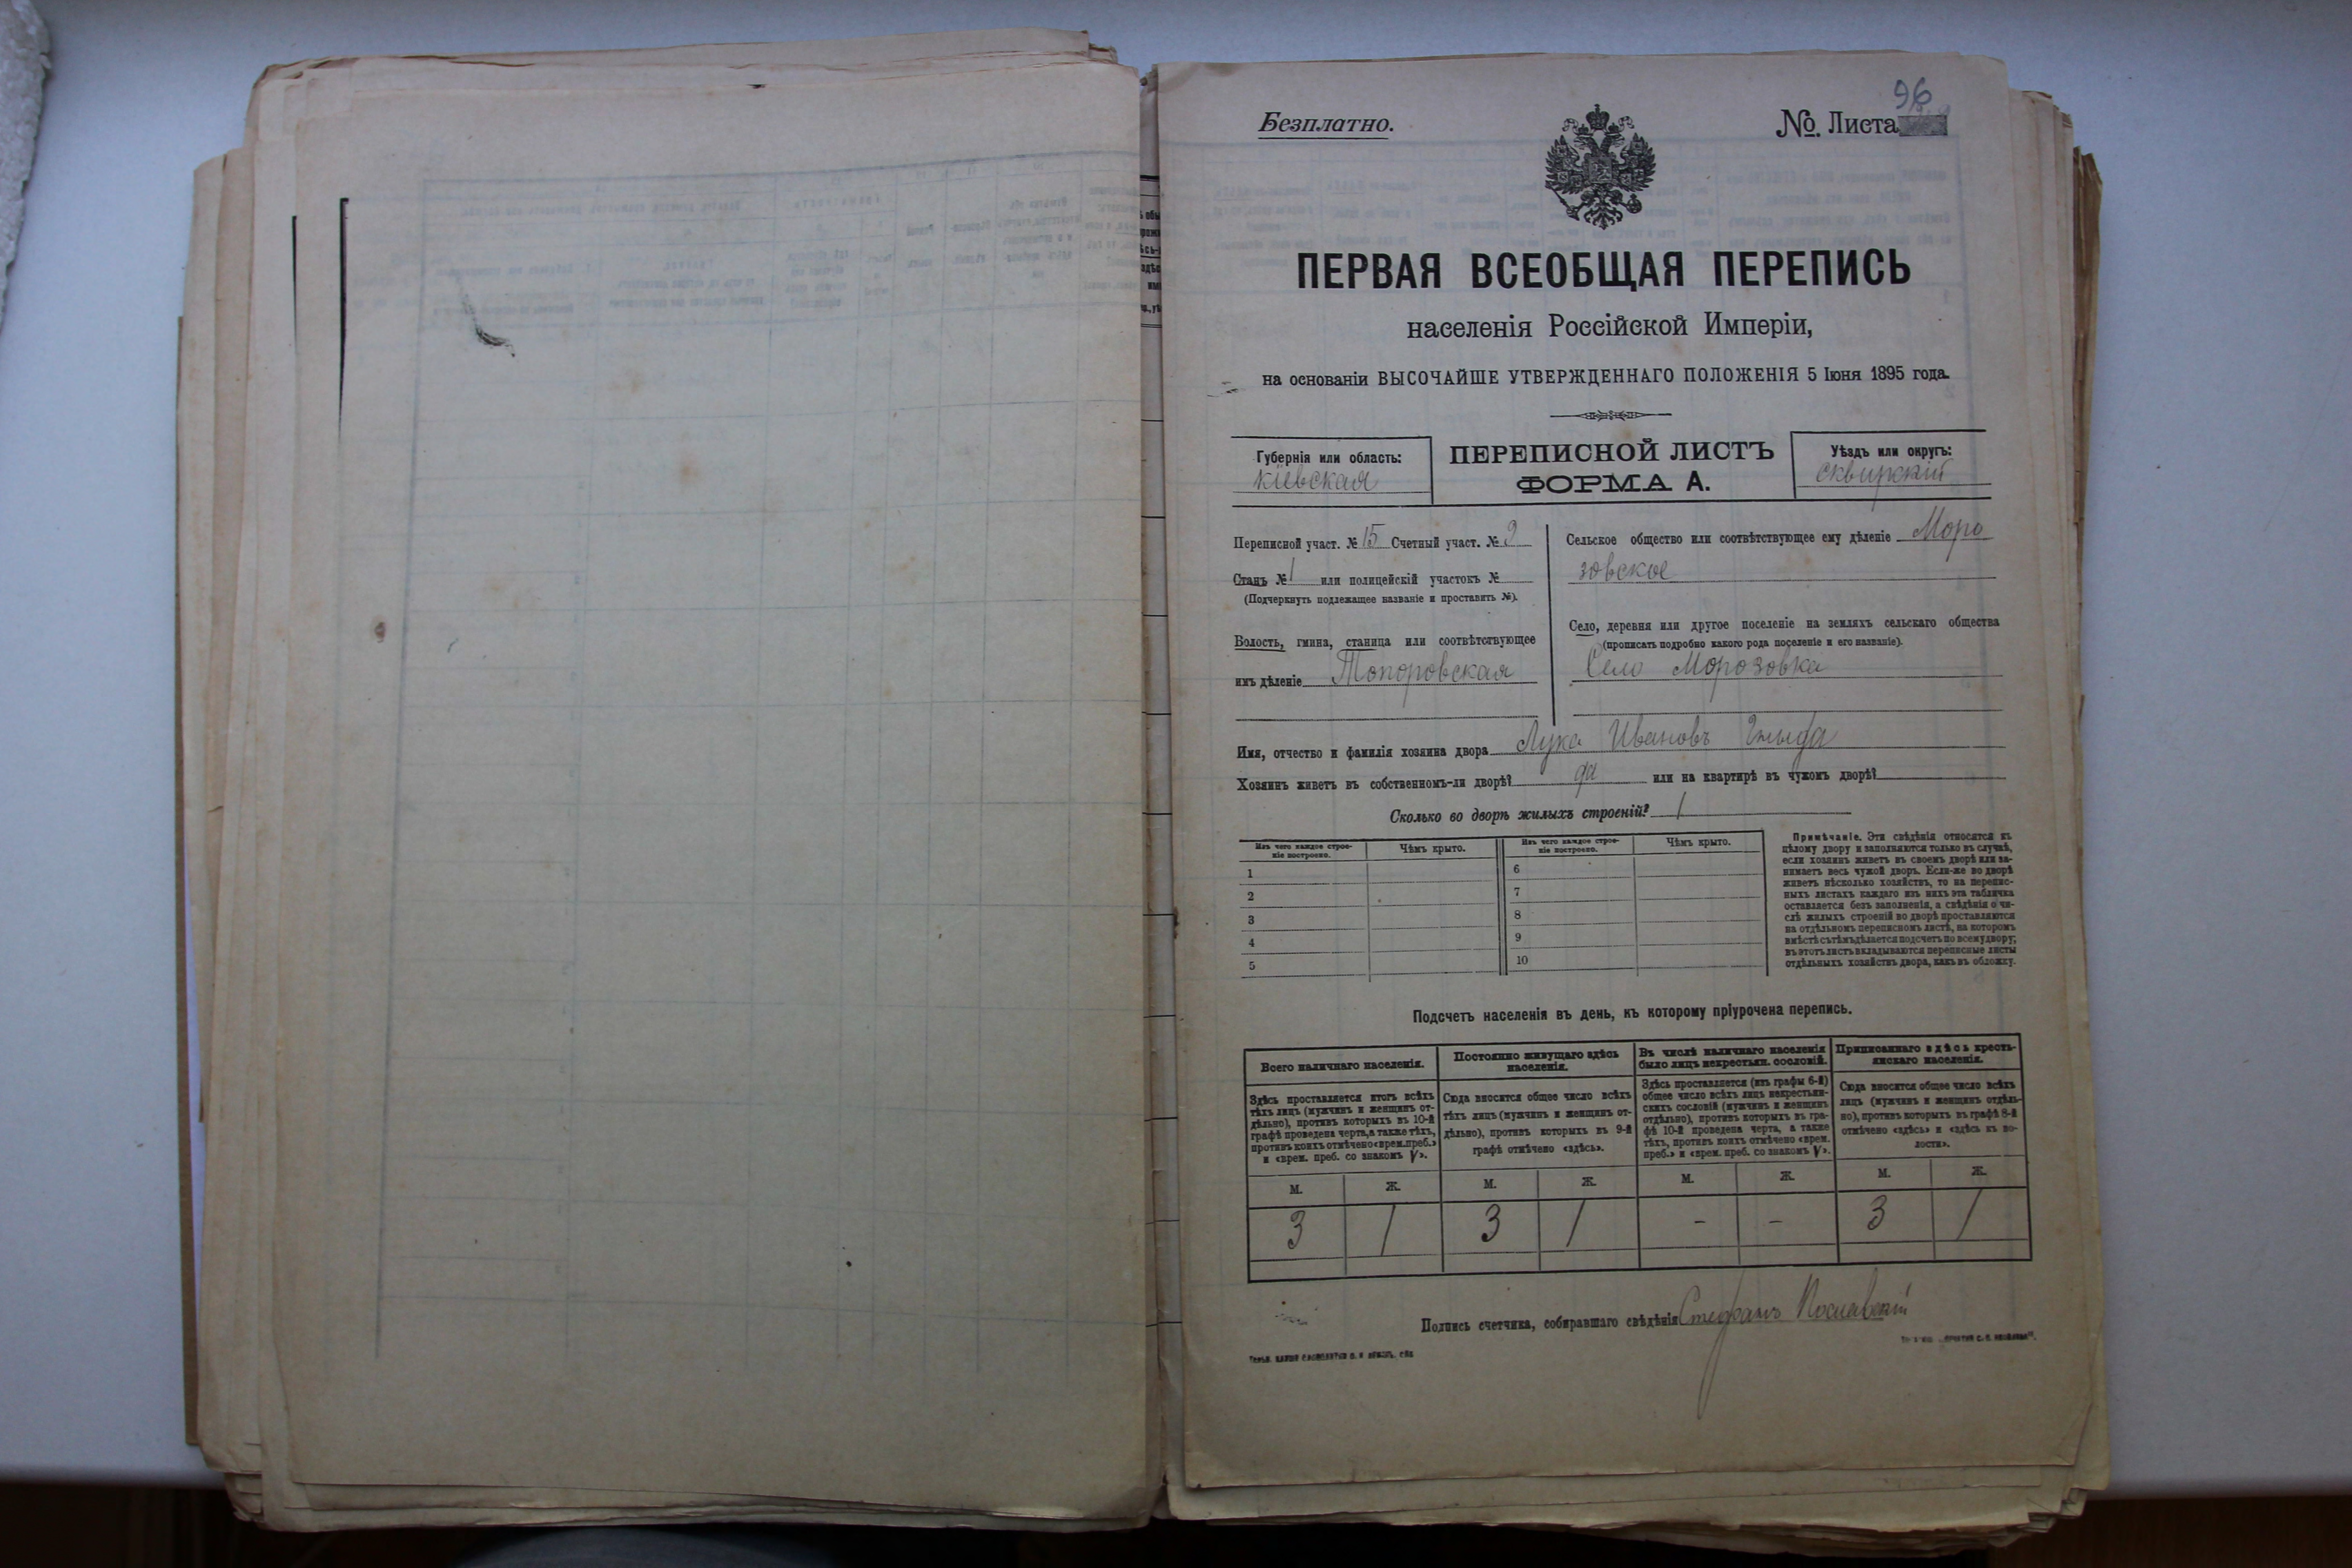 96
Безплатно.
№. Листа
ПЕРВАЯ ВСЕОБЩАЯ ПЕРЕПИСЬ
населенія Россійской Имперіи,
на основаніи ВЫСОЧАЙШЕ УТВЕРЖДЕННАГО ПОЛОЖЕНІЯ 5 Іюня 1895 года.
Губернія или область:
Кіевская
ПЕРЕПИСНОЙ ЛИСТЪ
ФОРМА А.
Уѣздъ или округъ:
Сквирскій
Переписной участ. № 15 Счетный участ. № 9
Станъ № 1 или полицейскій участокъ №
(Подчеркнуть подлежащее названіе и проставить №).
Волость, гмина, станица или соотвѣтствующее
имъ дѣленіе Топоровская
Сельское общество или соотвѣтствующее ему дѣленіе Моро
зовское
Село, деревня или другое поселеніе на земляхъ сельскаго общества
(прописать подробно какого рода поселеніе и его названіе).
Село Морозовка
Имя, отчество и фамилія хозяина двора Лука Ивановъ
Хозяинъ живетъ въ собственномъ-ли дворѣ? да или на квартирѣ въ чужомъ дворѣ?
Сколько во дворѣ жилыхъ строеній? 1
Изъ чего каждое строе-
ніе построено.
Чѣмъ крыто.
Изъ чего каждое строе-
ніе построено.
Чѣмъ крыто.
1
2
3
4
5
6
7
8
9
10
Примѣчаніе. Эти свѣдѣнія относятся къ
цѣлому двору и заполняются только въ случаѣ,
если хозяинъ живетъ въ своемъ дворѣ или за-
нимаетъ весь чужой дворъ. Если-же во дворѣ
живетъ нѣсколько хозяйствъ, то на перепис-
ныхъ листахъ каждаго изъ нихъ эта табличка
оставляется безъ заполненія, а свѣдѣнія о чи-
слѣ жилыхъ строеній во дворѣ проставляются
на отдѣльномъ переписномъ листѣ, на которомъ
вмѣстѣ съ тѣмъ дѣлается подсчетъ по всему двору;
въ этотъ листъ вкладываются переписные листы
отдѣльныхъ хозяйствъ двора, какъ въ обложку.
Подсчетъ населенія въ день, къ которому пріурочена перепись.
Всего наличнаго населенія.
Здѣсь проставляется итогъ всѣхъ
тѣхъ лицъ (мужчинъ и женщинъ от-
дѣльно), противъ которыхъ въ 10-й
графѣ проведена черта, а также тѣхъ,
противъ коихъ отмѣчено «врем. преб.»
и «врем. преб. со знакомъ V».
Постоянно живущаго здѣсь
населенія.
Сюда вносится общее число всѣхъ
тѣхъ лицъ (мужчинъ и женщинъ от-
дѣльно), противъ которыхъ въ 9-й
графѣ отмѣчено «здѣсь».
Въ числѣ наличнаго населенія
было лицъ некрестьян. сословій.
Здѣсь проставляется (изъ графы 6-й)
общее число всѣхъ лицъ некрестьян-
скихъ сословій (мужчинъ и женщинъ
отдѣльно), противъ которыхъ въ гра-
фѣ 10-й проведена черта, а также
тѣхъ, противъ коихъ отмѣчено «врем.
преб.» и «врем. преб. со знакомъ V».
Приписаннаго здѣсь кресть-
янскаго населенія.
Сюда вносится общее число всѣхъ
лицъ (мужчинъ и женщинъ отдѣль-
но), противъ которыхъ въ графѣ 8-й
отмѣчено «здѣсь» и «здѣсь къ во-
лости».
М. Ж. М. Ж. М. Ж. М. Ж.
3 1 3 1 - - 3 1
Подпись счетчика, собиравшаго свѣдѣнія Стефанъ